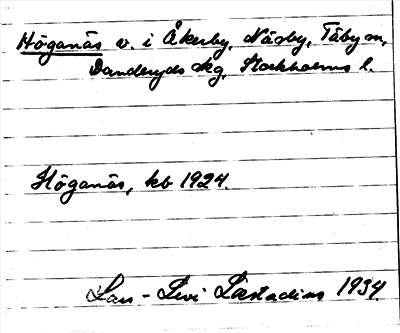 Höganäs v. i Åkerby, Näsby, Täby sn,
Danderyds skg, Stockholms l.
Höganäs, kb 1924.
Lars-Levi Læstadius 1934